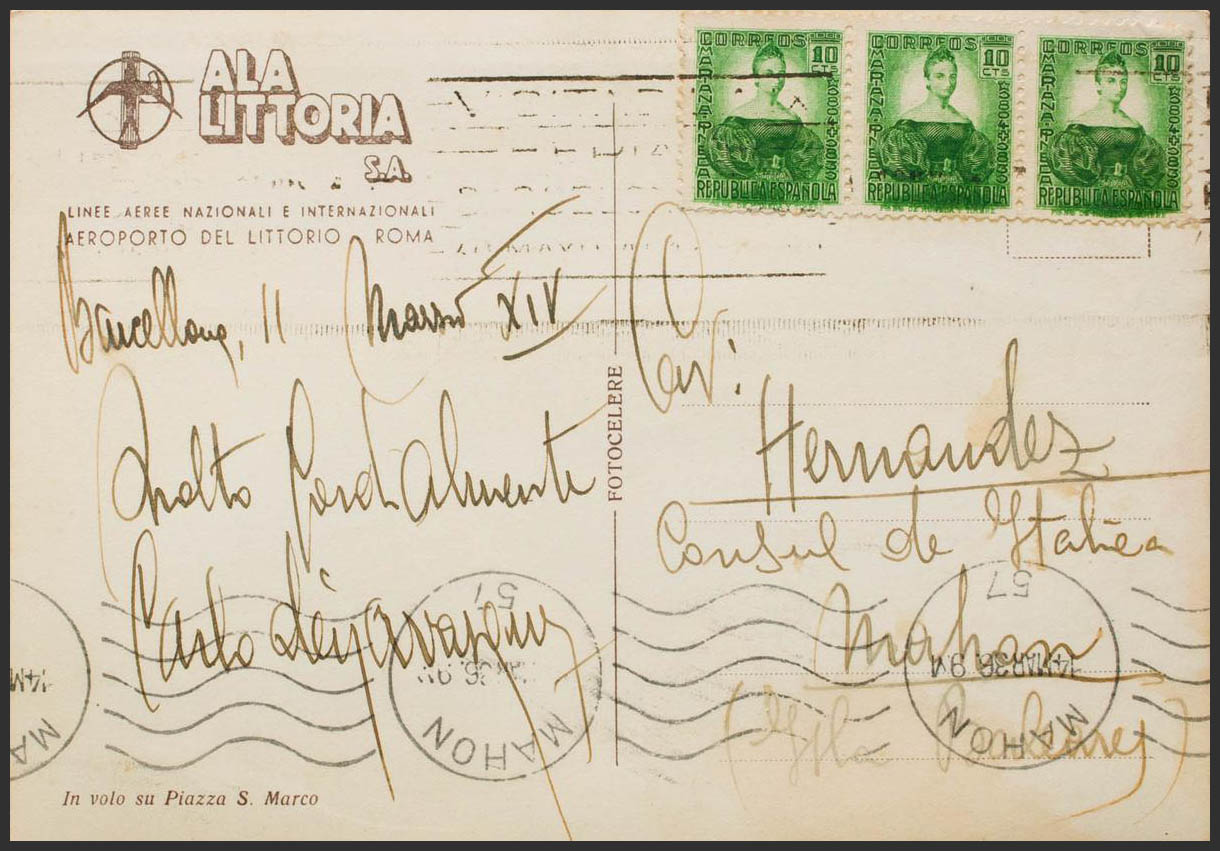 ALA
LITTORIA
S.A.
LINEE AEREE NAZIONALI E INTERNAZIONALI
AEROPORTO DEL LITTORIO ROMA
Barcellona, 11 Marzo XIV
Molto Cordialmente
Carlo
In volo su Piazza S. Marco
FOTOCELERE
CORREOS 10 CTS
MARIANA PINEDA
REPUBLICA ESPAÑOLA
CORREOS 10 CTS
MARIANA PINEDA
REPUBLICA ESPAÑOLA
CORREOS 10 CTS
MARIANA PINEDA
REPUBLICA ESPAÑOLA
Cav. Hernandez
Consul de Italia
Mahon
(Isla Baleares)
57
14 MAR 36 9M
MAHON
57
MAHON
14 M
MA